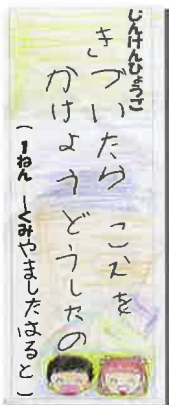 じんけんひょうご
きづいたら こえを
かけよう どうしたの
(1ねん 1くみ やましたはると)